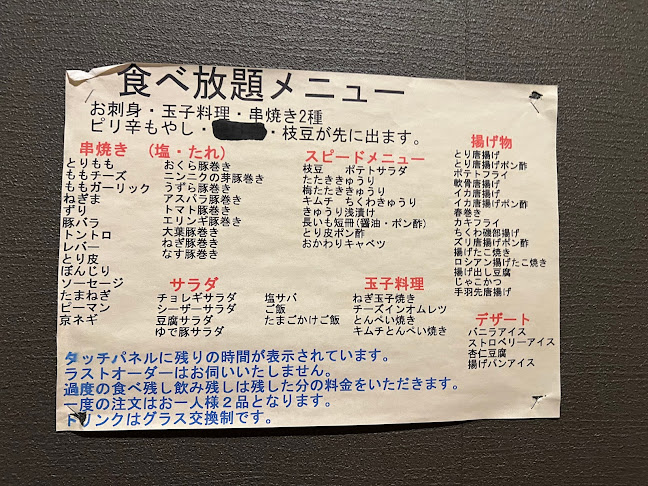 食べ放題メニュー
お刺身・玉子料理・串焼き2種
ピリ辛もやし・ ・枝豆が先に出ます。
串焼き (塩・たれ)
とりもも
ももチーズ
ももガーリック
ねぎま
ずり
豚バラ
トントロ
レバー
とり皮
ぼんじり
ソーセージ
たまねぎ
ピーマン
京ネギ
おくら豚巻き
ニンニクの芽豚巻き
うずら豚巻き
アスパラ豚巻き
トマト豚巻き
エリンギ豚巻き
大葉豚巻き
ねぎ豚巻き
なす豚巻き
スピードメニュー
枝豆 ポテトサラダ
たたききゅうり
梅たたききゅうり
キムチ ちくわきゅうり
きゅうり浅漬け
長いも短冊(醤油・ポン酢)
とり皮ポン酢
おかわりキャベツ
揚げ物
とり唐揚げ
とり唐揚げポン酢
ポテトフライ
軟骨唐揚げ
イカ唐揚げ
イカ唐揚げポン酢
春巻き
カキフライ
ちくわ磯部揚げ
ズリ唐揚げポン酢
揚げたこ焼き
ロシアン揚げたこ焼き
揚げ出し豆腐
じゃこかつ
手羽先唐揚げ
サラダ
チョレギサラダ
シーザーサラダ
豆腐サラダ
ゆで豚サラダ
塩サバ
ご飯
たまごかけご飯
玉子料理
ねぎ玉子焼き
チーズインオムレツ
とんぺい焼き
キムチとんぺい焼き
デザート
バニラアイス
ストロベリーアイス
杏仁豆腐
揚げパンアイス
タッチパネルに残りの時間が表示されています。
ラストオーダーはお伺いいたしません。
過度の食べ残し飲み残しは残した分の料金をいただきます。
一度の注文はお一人様2品となります。
ドリンクはグラス交換制です。